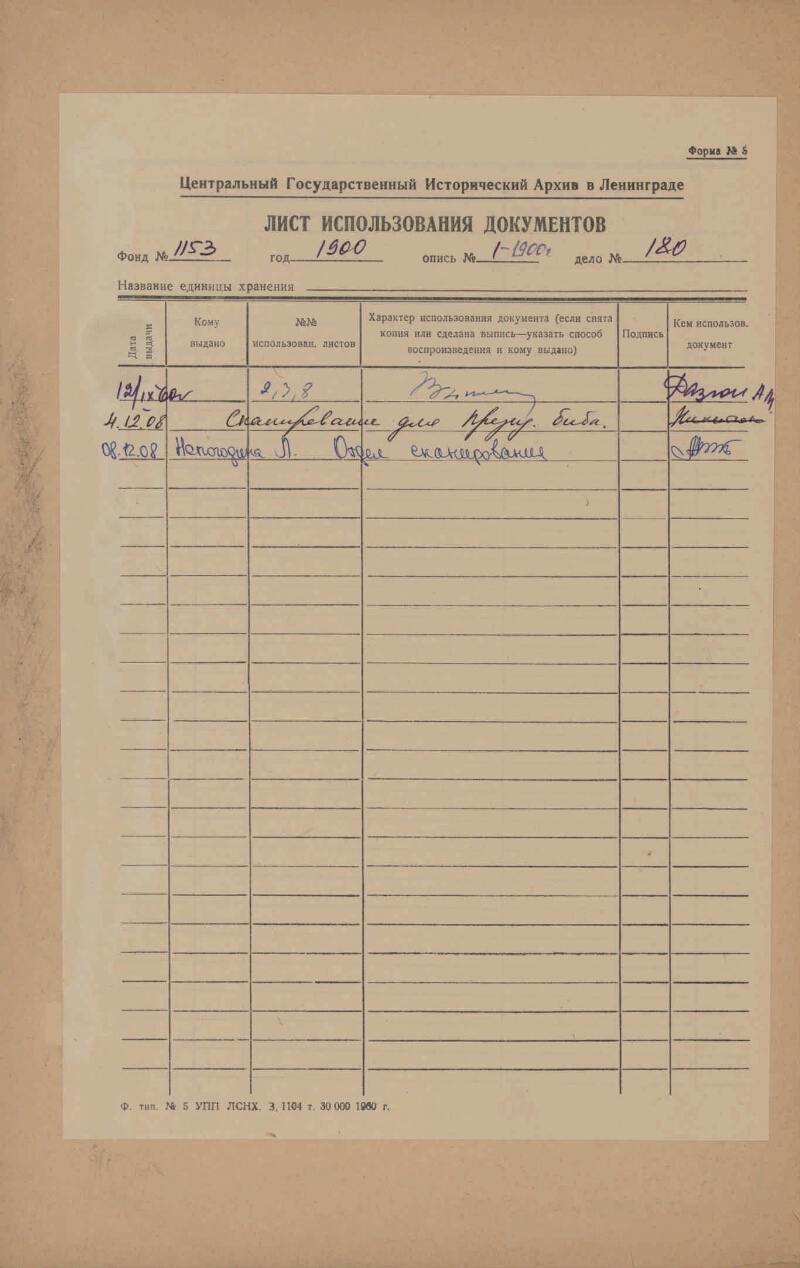 Форма № 5
Центральный Государственный Исторический Архив в Ленинграде
ЛИСТ ИСПОЛЬЗОВАНИЯ ДОКУМЕНТОВ
Фонд № 1153 год 1900 опись № 1-1900г дело № 180
Название единицы хранения
Дата выдачи
Кому выдано
№№ использован. листов
Характер использования документа (если снята копия или сделана выпись—указать способ воспроизведения и кому выдано)
Подпись
Кем использов. документ
2, 3, 8
4.12.08 Сканирование для Презид. библ.
08.12.08 Непогодина Л. Отдел сканирования
Ф. тип. № 5 УПП ЛСНХ. З. 1104 т. 30 000 1960 г.